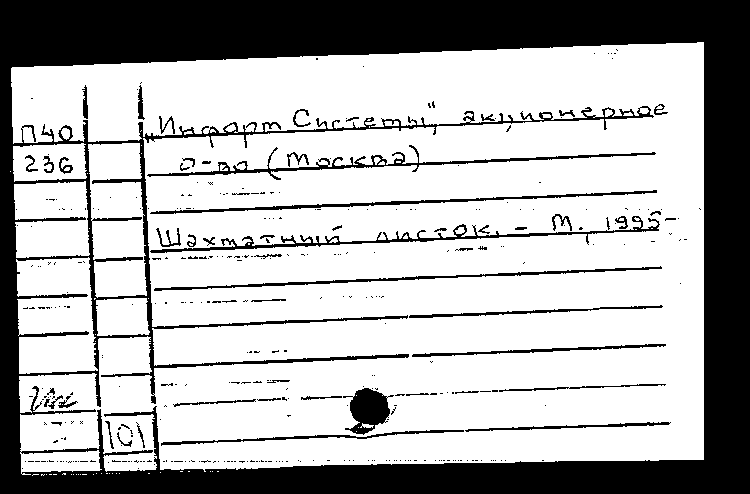 П40
236
„Информ Системы", акционерное
о-во (Москва)
Шахматный листок. - М., 1995-
101